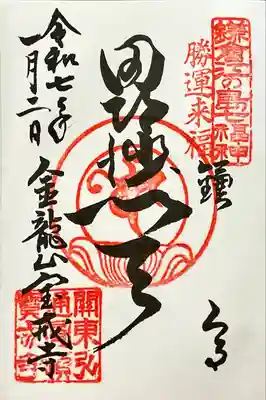 鎌倉江の島七福神
勝運来福
鎌倉
毘沙門天
令和七年
一月二日
金龍山宝戒寺
關東弘